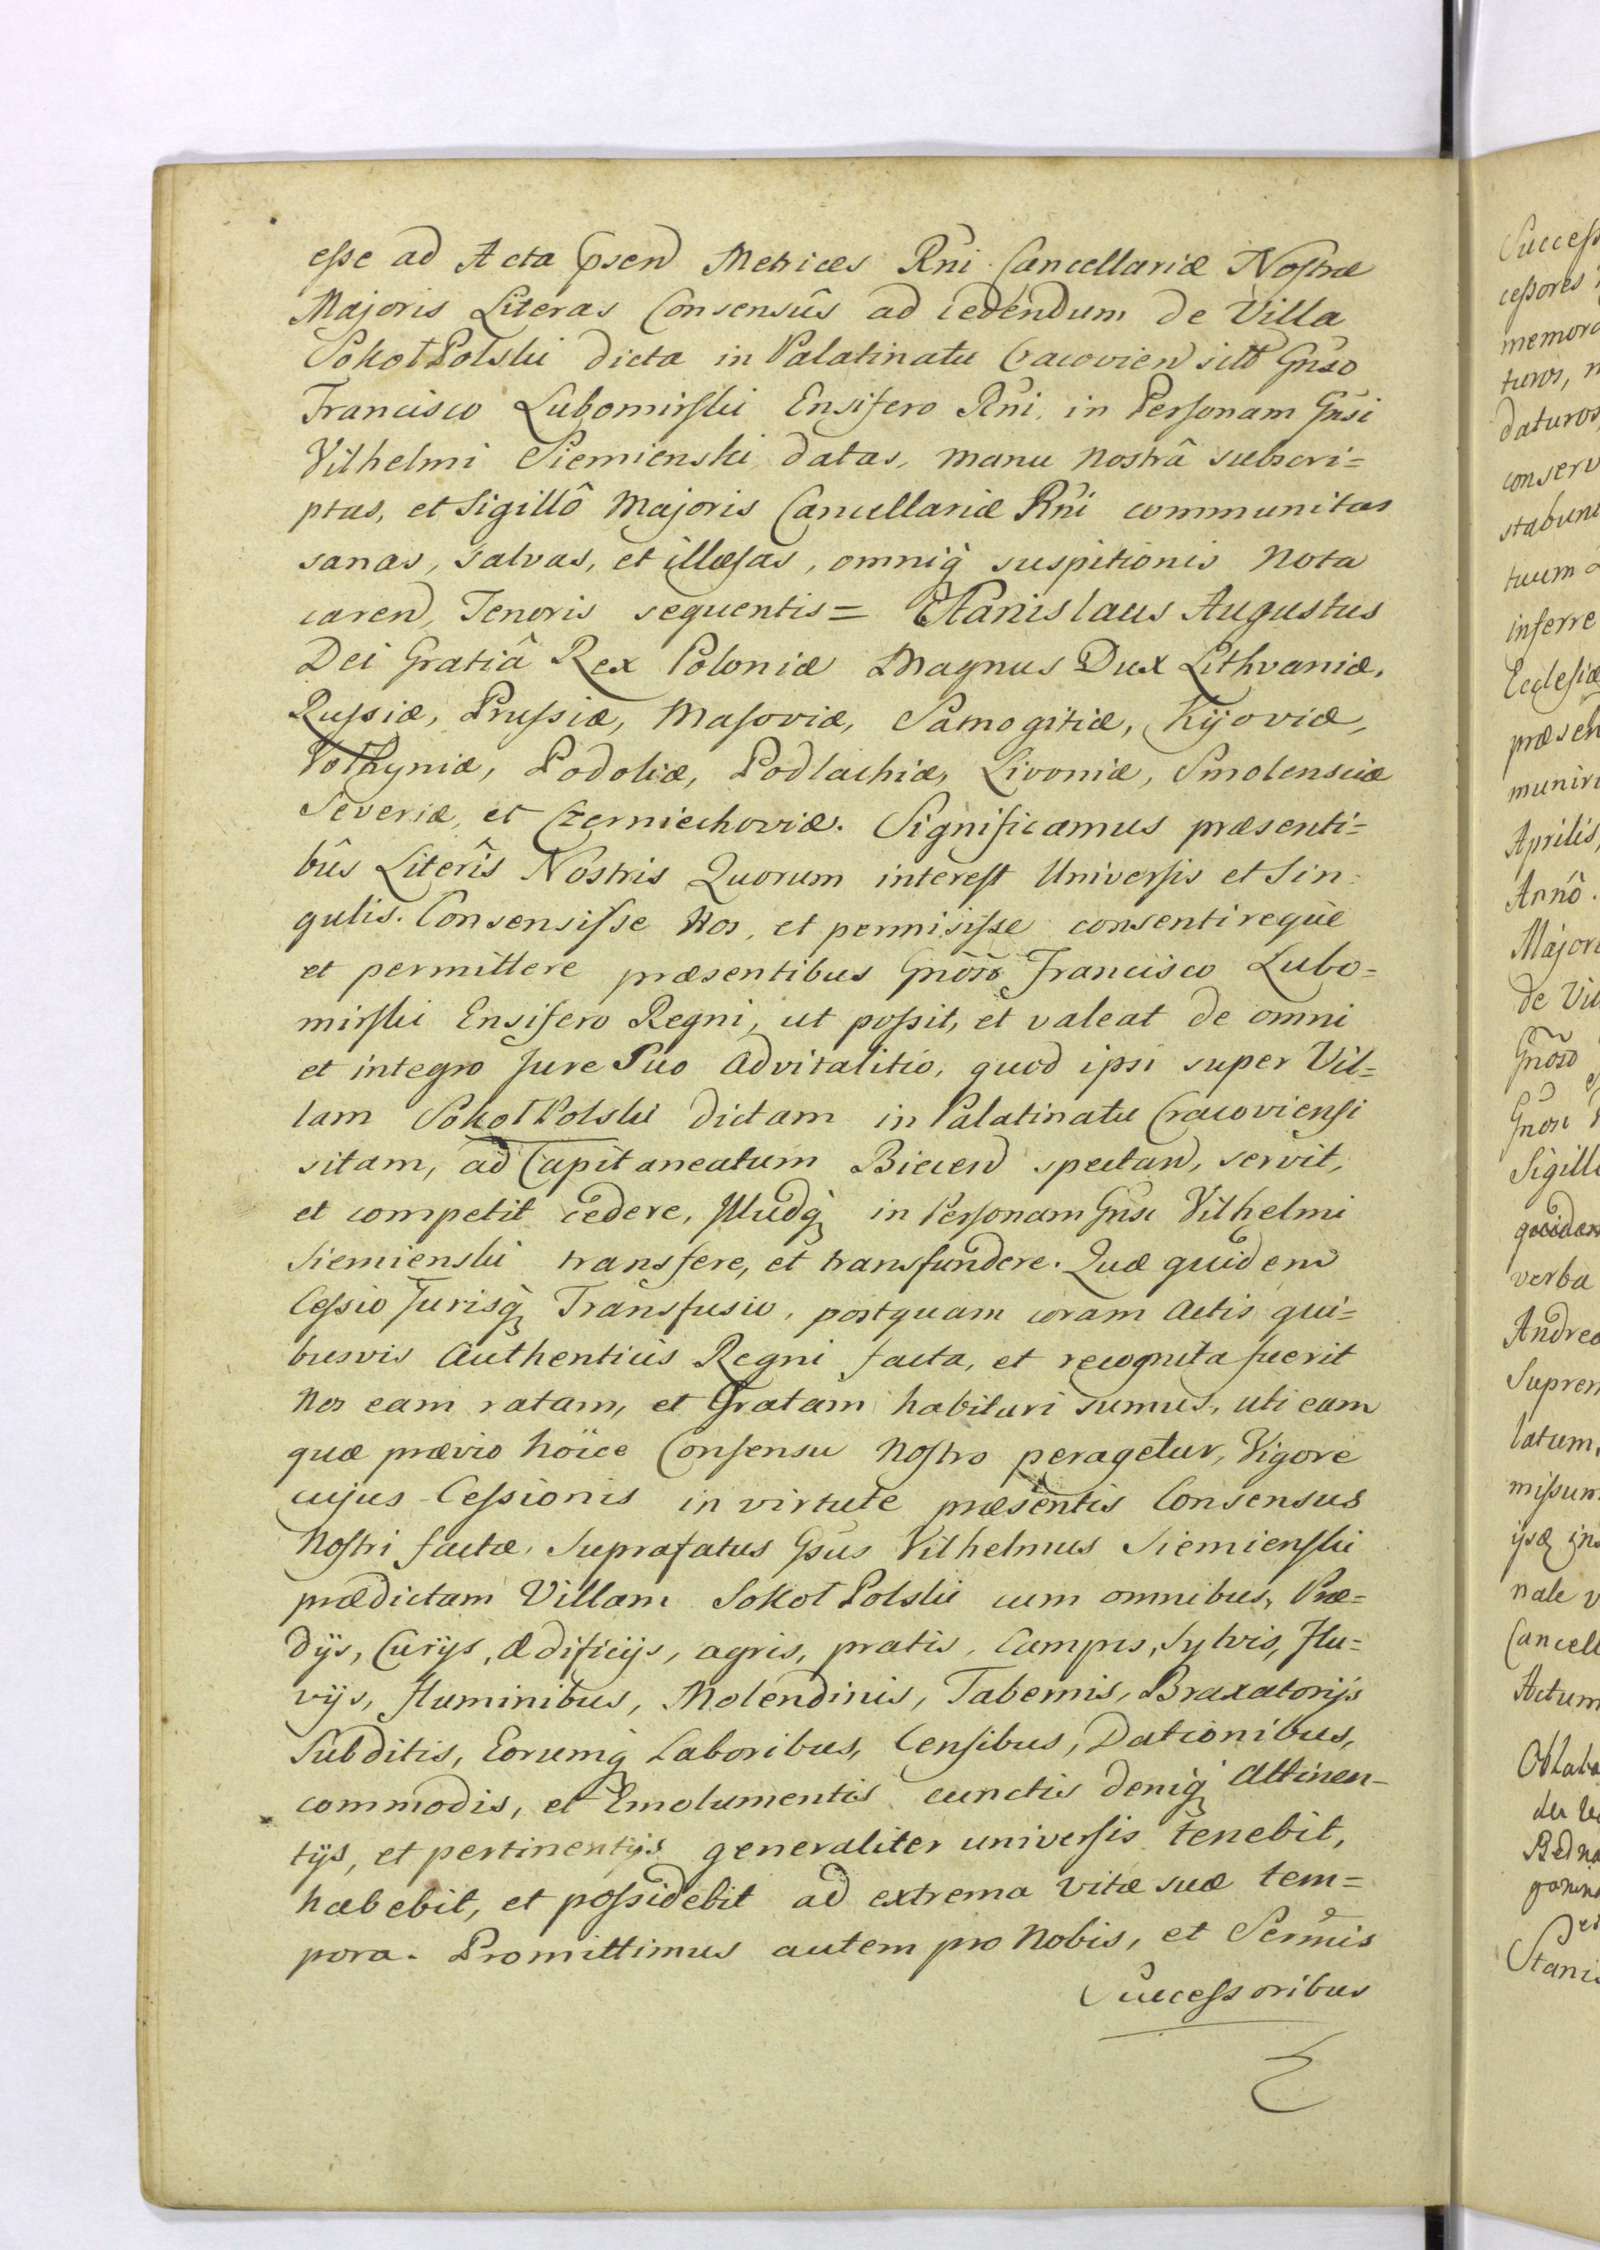 esse ad Acta psen Metrices Rni Cancellariæ Nostræ
Majoris Literas Consensûs ad cedendum de Villa
Sokoł Polski dicta in Palatinatu Cracovien sitt Gnso
Francisco Lubomirski Ensifero Rni, in Personam Gnsi
Vilhelmi Siemienski datas, manu nostrâ subscri=
ptas, et Sigillô Majoris Cancellariæ Rni communitas
sanas, salvas, et illæsas, omniq suspitionis nota
caren, Tenoris sequentis = Stanislaus Augustus
Dei Gratiâ Rex Poloniæ Magnus Dux Lithvaniæ,
Russiæ, Prussiæ, Masoviæ, Samogitiæ, Kijoviæ,
Volhyniæ, Podoliæ, Podlachiæ, Livoniæ, Smolensciæ
Severiæ, et Czerniechoviæ. Significamus præsenti=
bûs Literîs Nostris Quorum interest Universis et Sin=
gulis. Consensisse Nos, et permisisse consentireque
et permittere præsentibus Gnoso Francisco Lubo=
mirski Ensifero Regni, ut possit, et valeat de omni
et integro Jure Suo Advitalitio, quod ipsi super Vil=
lam Sokoł Polski dictam in Palatinatu Cracoviensi
sitam, ad Capitaneatum Biecen spectan, servit,
et competit cedere, Illudq in Personam Gnsi Vilhelmi
Siemienski transfere, et transfundere. Quæ quidem
Cessio Jurisq Transfusio, postquam coram Actis qui=
busvis Authenticis Regni facta, et recognita fuerit
Nos eam ratam, et Gratam habituri sumus, uti eam
quæ prævio hoïce Consensu Nostro peragetur, Vigore
cujus Cessionis in virtute præsentis Consensus
Nostri factæ, Suprafatus Gsus Vilhelmus Siemienski
prædictam Villam Sokoł Polski cum omnibus, Præ=
dijs, Curijs, Ædificijs, agris, pratis, Campis, Sylvis, Flu=
vijs, Fluminibus, Molendinis, Tabernis, Braxatorijs
Subditis, Eorumq Laboribus, Censibus, Dationibus,
commodis, et Emolumentis cunctis deniq Attinen=
tijs, et pertinentijs generaliter universis tenebit,
habebit, et possidebit ad extrema vitæ suæ tem=
pora. Promittimus autem pro Nobis, et Sermis
Successoribus